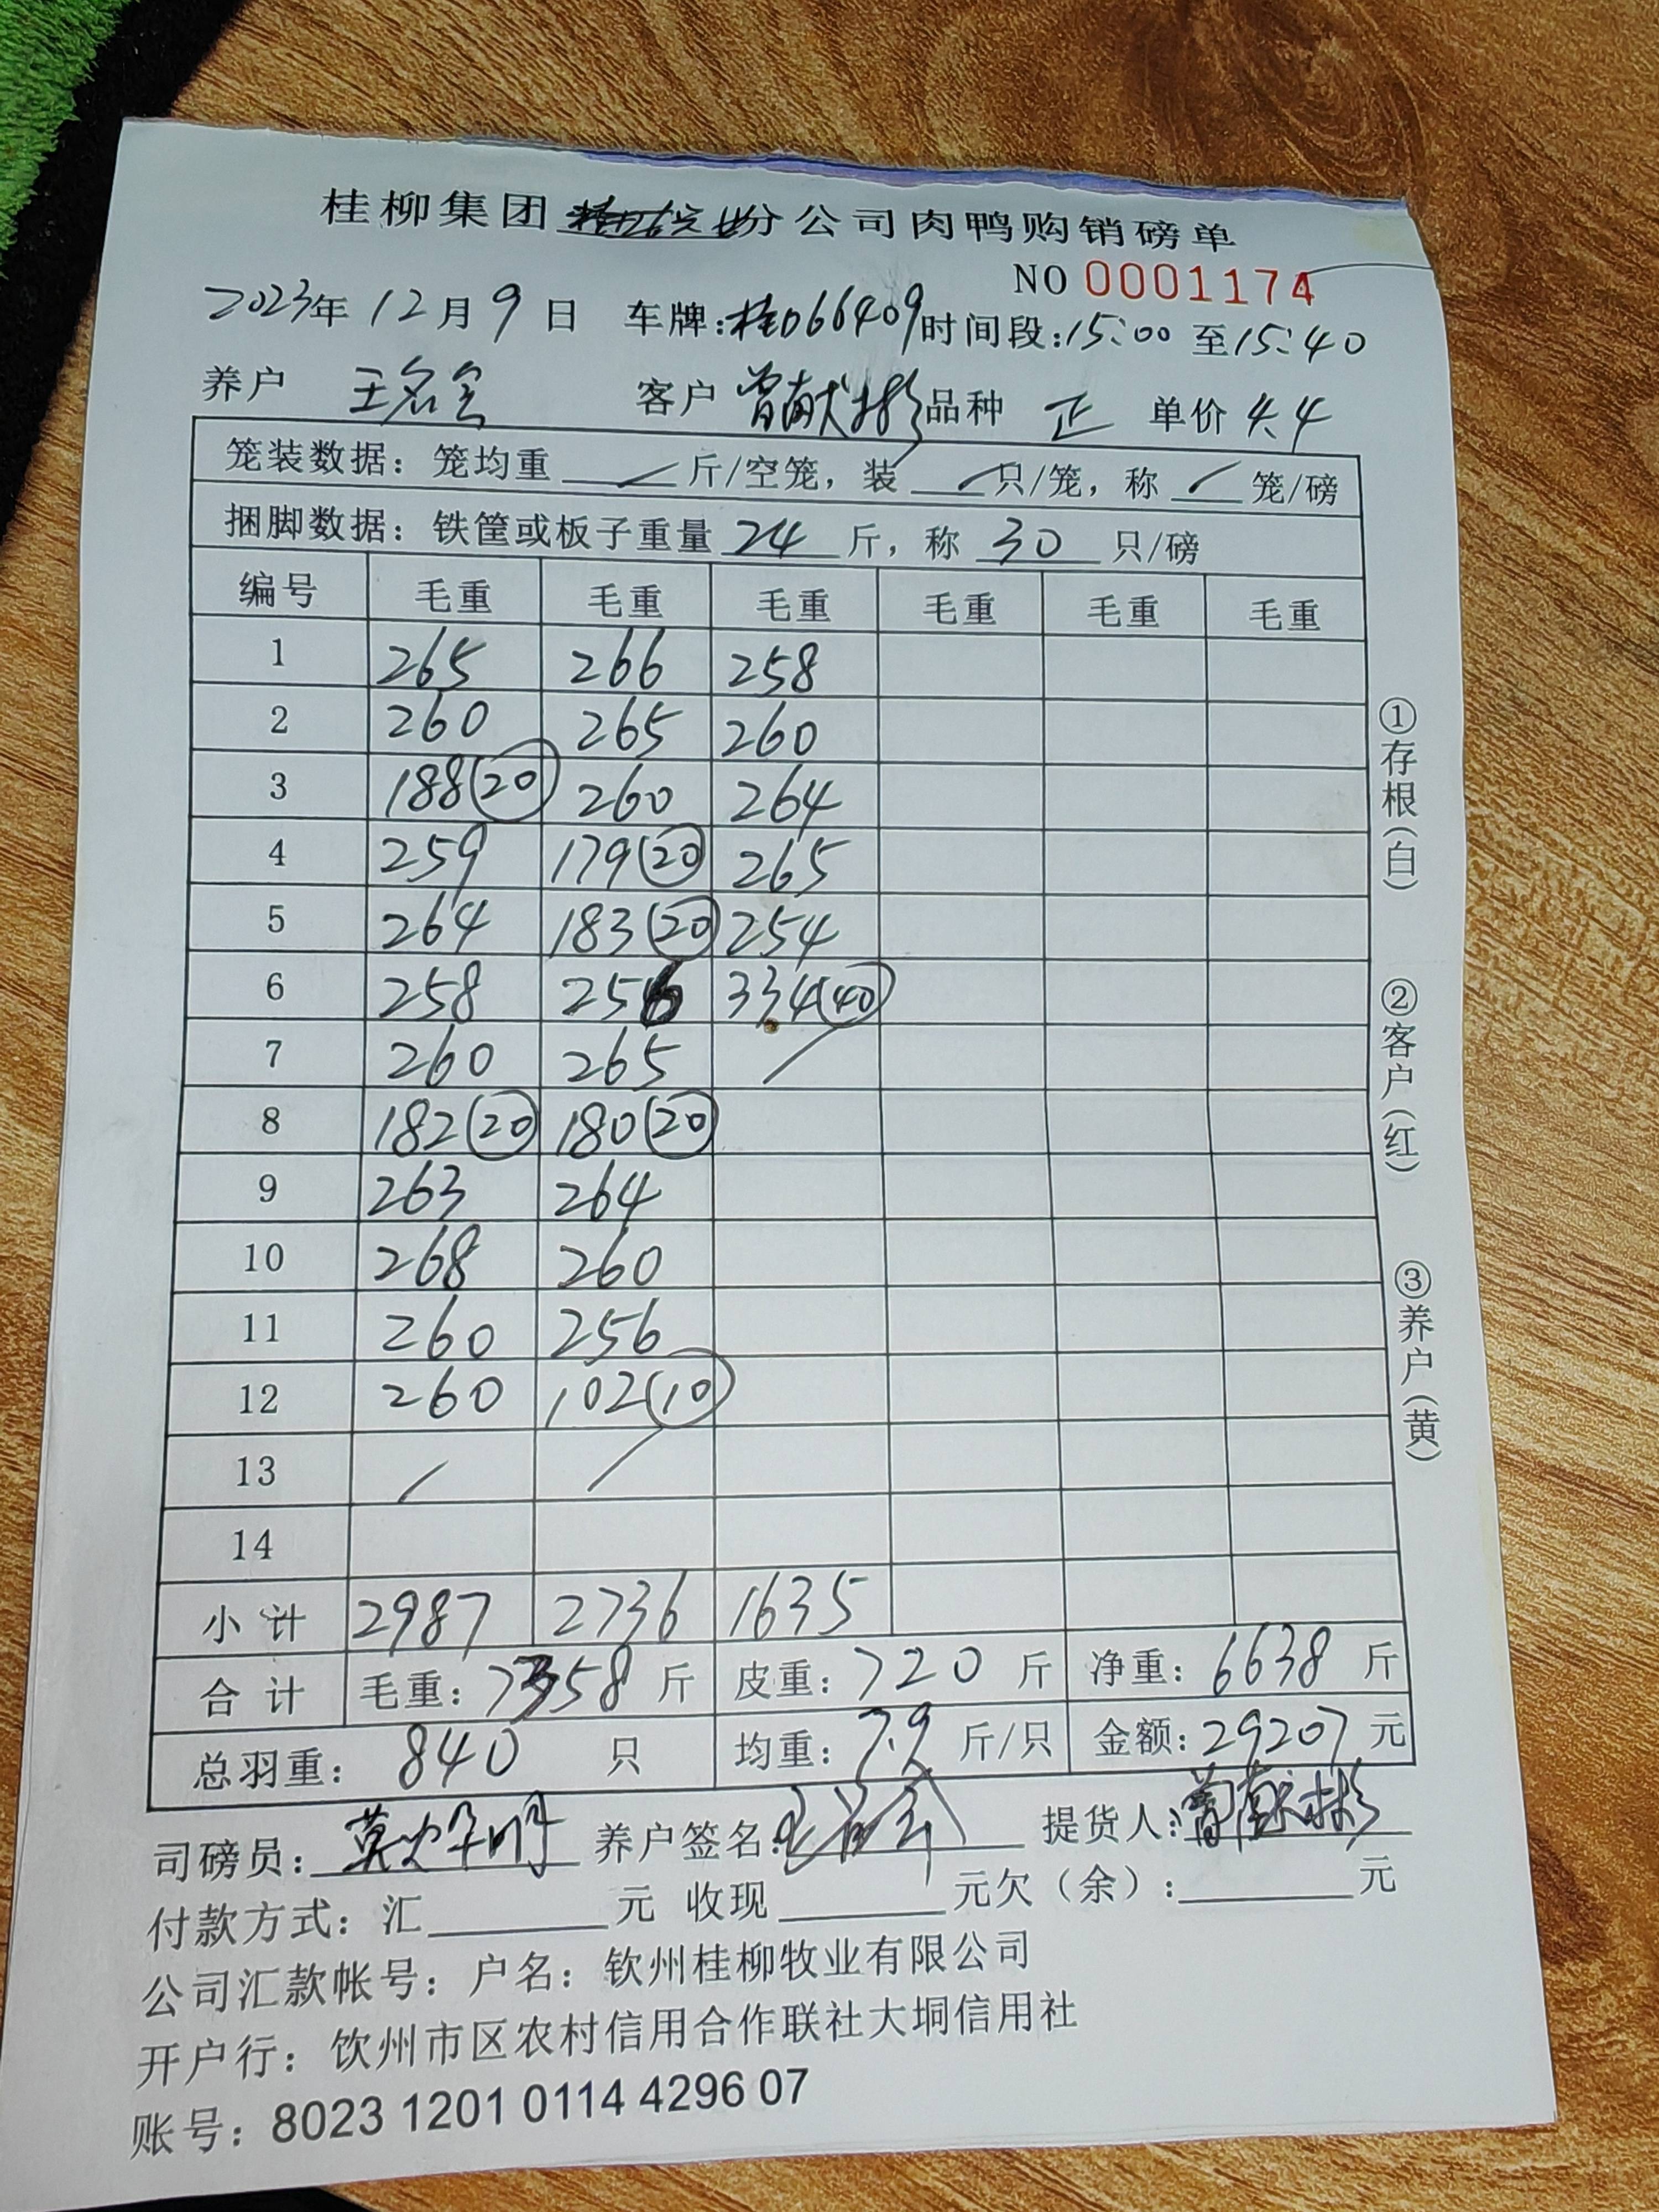 桂柳集团 分公司肉鸭购销磅单
NO 0001174
2023年 12月 9日 车牌:桂D66409 时间段:15:00 至15:40
养户 王名会 客户 曾献彬 品种 正 单价 4.4
笼装数据: 笼均重 / 斤/空笼, 装 / 只/笼, 称 / 笼/磅
捆脚数据: 铁筐或板子重量 24 斤, 称 30 只/磅
编号 毛重 毛重 毛重 毛重 毛重 毛重
1 265 266 258
2 260 265 260
3 188(20) 260 264
4 259 179(20) 265
5 264 183(20) 254
6 258 256 334(40)
7 260 265 /
8 182(20) 180(20)
9 263 264
10 268 260
11 260 256
12 260 102(10)
13 / /
14
小计 2987 2736 1635
合计 毛重: 7358 斤 皮重: 720 斤 净重: 6638 斤
总羽重: 840 只 均重: 7.9 斤/只 金额: 29207 元
司磅员: 养户签名: 提货人: 曾献彬
付款方式: 汇 元 收现 元欠(余): 元
公司汇款帐号: 户名: 钦州桂柳牧业有限公司
开户行: 钦州市区农村信用合作联社大垌信用社
账号: 8023 1201 0114 4296 07
①存根(白) ②客户(红) ③养户(黄)